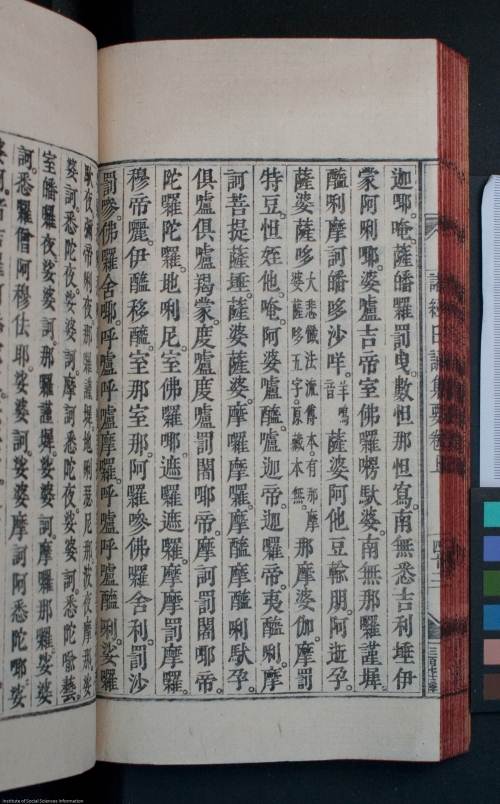 迦唧。唵。薩皤囉罰曳。數怛那怛寫。南無悉吉利埵伊
蒙阿唎唧。婆盧吉帝室佛囉楞馱婆。南無那囉謹墀。
醯唎摩訶皤哆沙咩。羊鳴音薩婆阿他豆輸朋。阿逝孕。
薩婆薩哆大悲懺法流傳本。有那摩婆薩哆五字。原藏本無。那摩婆伽。摩罰
特豆。怛姪他。唵。阿婆盧醯。盧迦帝。迦羅帝。夷醯唎。摩
訶菩提薩埵。薩婆薩婆。摩囉摩囉。摩醯摩醯唎馱孕。
俱盧俱盧羯蒙。度盧度盧罰闍唧帝。摩訶罰闍唧帝。
陀囉陀囉。地唎尼。室佛囉唧。遮囉遮囉。摩摩罰摩囉。
穆帝麗。伊醯移醯。室那室那。阿囉嘇佛囉舍利。罰沙
罰嘇。佛囉舍唧。呼盧呼盧摩囉。呼盧呼盧醯唎。娑囉
馱夜。娑婆訶。悉陀夜。娑婆訶。摩訶悉陀夜。娑婆訶。悉陀喻藝。
室皤囉夜娑婆訶。那囉謹墀。娑婆訶。摩囉那囉。娑婆
訶。悉囉僧阿穆佉耶。娑婆訶。娑婆摩訶阿悉陀唧。娑
諸經日誦集要卷上
四十二
Institute of Social Sciences Information